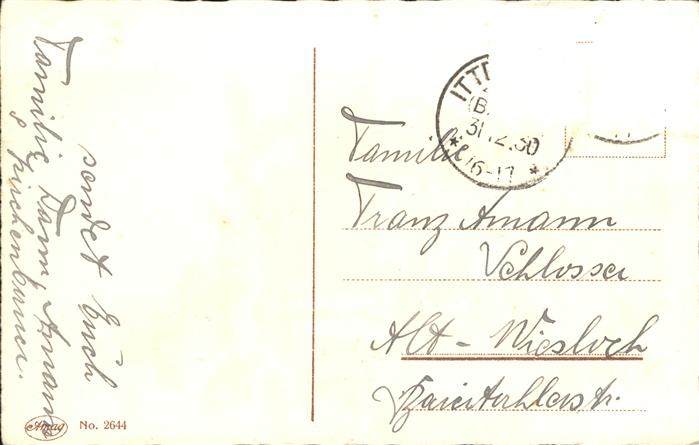 sendet Euch
Familie Damm, Amann
& Kirchenbauer.
Amag No. 2644
ITT
(B
31.12.30
* 16-17 *
Familie
Franz Amann
Schlosser
Alt-Wiesloch